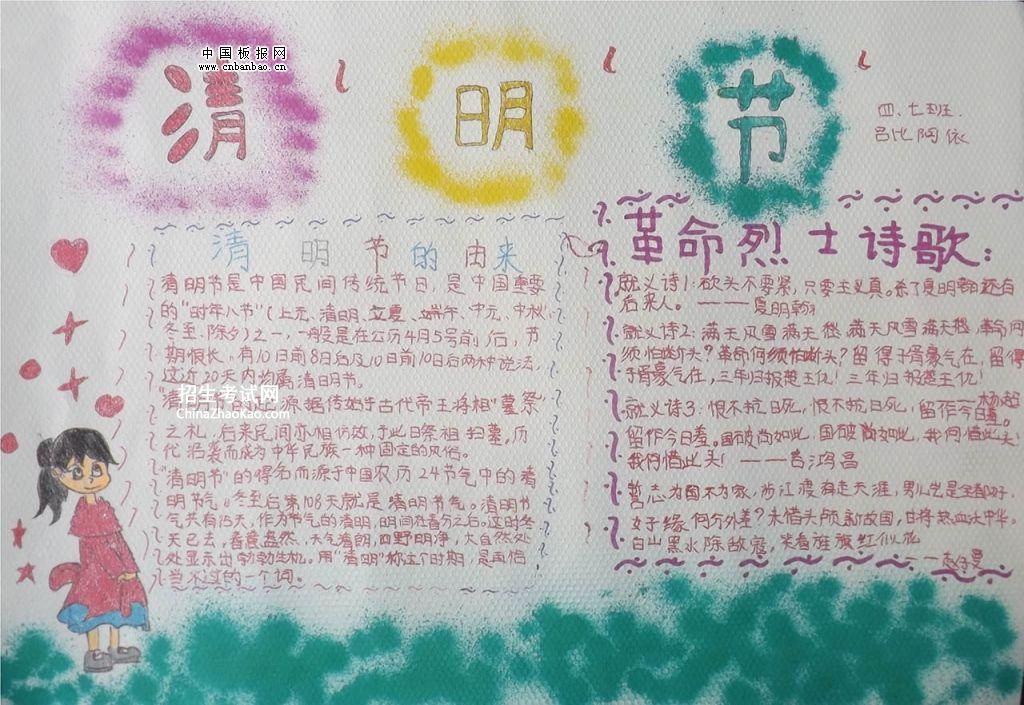 中国板报网
www.cnbanbao.cn
清 明 节
四、七班.
吕比阿依
清 明 节 的 由来
清明节是中国民间传统节日,是中国重要
的"时年八节"(上元、清明、立夏、端午、中元、中秋、
冬至、除夕)之一,一般是在公历4月5号前后,节
期很长,有10日前8日后及10日前10日后两种说法,
这近20天内均属清明节。
招生考试网
ChinaZhaokao.com
源据传始于古代帝王将相"墓祭"
之礼,后来民间亦相仿效,于此日祭祖扫墓,历
代沿袭而成为中华民族一种固定的风俗。
"清明节"的得名而源于中国农历24节气中的清
明节气。冬至后第108天就是清明节气。清明节
气共有15天,作为节气的清明,时间在春分之后。这时冬
天已去,春意盎然,天气清朗,四野明净,大自然处
处显示出勃勃生机。用"清明"称这个时期,是再恰
当不过的一个词。
革命烈士诗歌:
就义诗1:砍头不要紧,只要主义真。杀了夏明翰,还有
后来人。 ————夏明翰
就义诗2:满天风雪满天愁,满天风雪满天愁,革命何
须怕断头?革命何须怕断头?留得子胥豪气在,留得
子胥豪气在,三年归报楚王仇!三年归报楚王仇!
——杨超
就义诗3:恨不抗日死,恨不抗日死,留作今日羞。
留作今日羞。国破尚如此,国破尚如此,我何惜此头!
我何惜此头! ———吉鸿昌
誓志为国不为家,涉江渡海走天涯,男儿岂是全都好,
女子缘何分外差?未惜头颅新故国,甘将热血沃中华。
白山黑水除敌寇,笑看旌旗红似花
——赵一曼